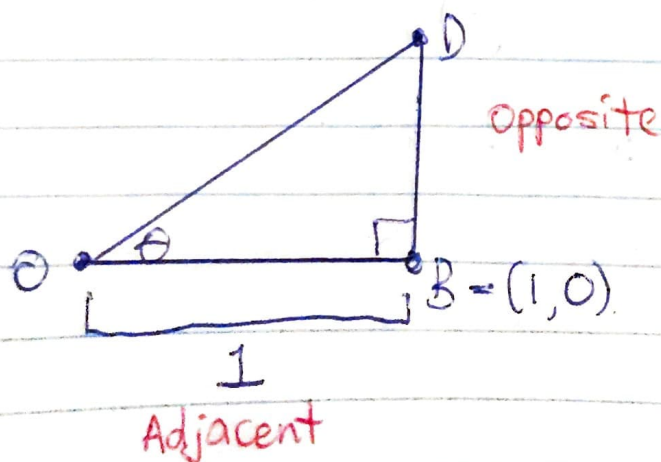 D
Opposite
θ
O
B = (1,0)
1
Adjacent